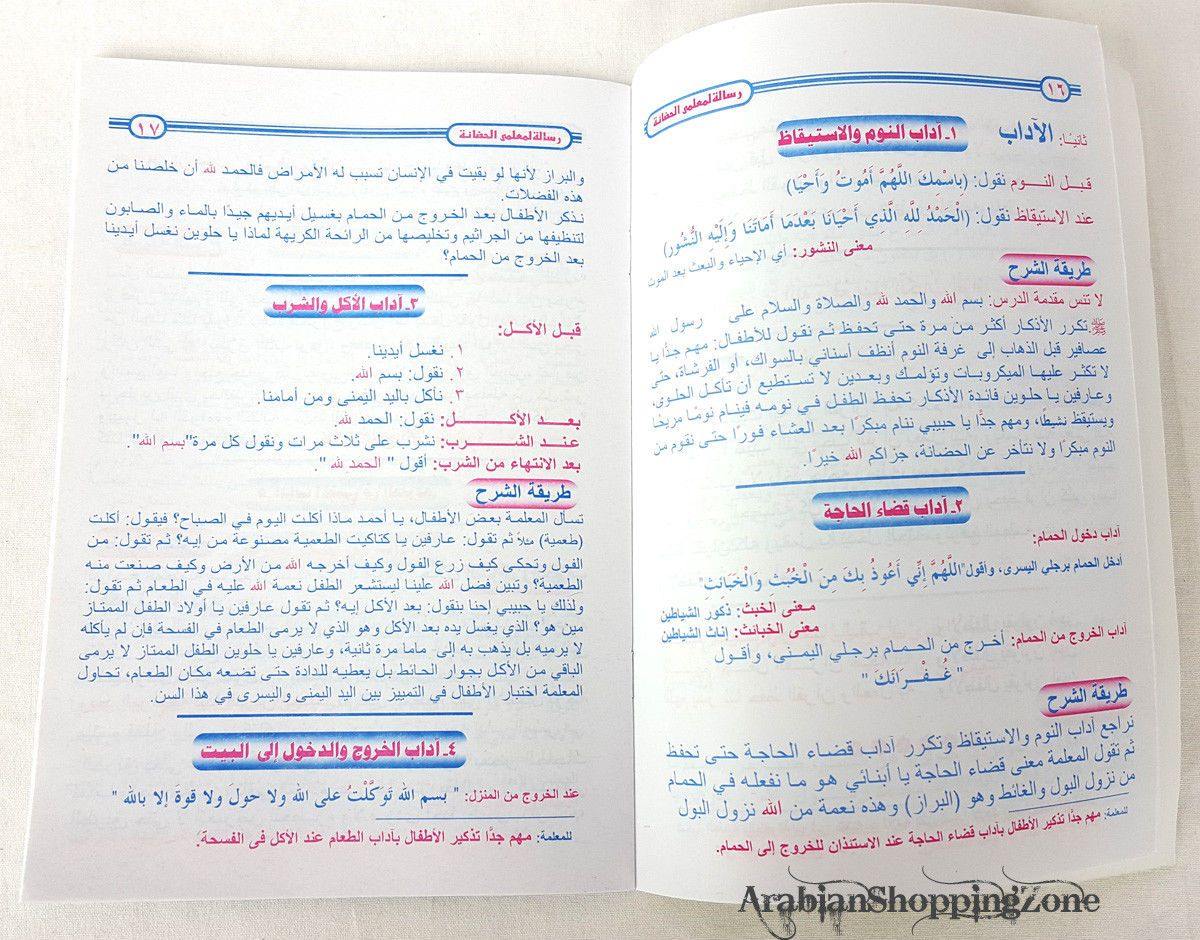 رسالة لمعلمي الحضانة
١٦
ثانيًا: الآداب
١ـ آداب النوم والاستيقاظ
قبـل النـــوم نقول: (بِاسْمِكَ اللَّهُمَّ أَمُوتُ وَأَحْيَا)
عند الاستيقاظ نقول: (الْحَمْدُ لِلَّهِ الَّذِي أَحْيَانَا بَعْدَمَا أَمَاتَنَا وَإِلَيْهِ النُّشُور)
معنى النشور: أي الإحياء والبعث بعد الموت
طريقة الشرح
لا تنس مقدمة الدرس: بسم الله والحمد لله والصلاة والسلام على رسول الله
ﷺ تكرر الأذكار أكثر من مرة حتى تحفظ ثم نقول للأطفال: مهم جدًّا يا
عصافير قبل الذهاب إلى غرفة النوم أنظف أسناني بالسواك، أو الفرشاة، حتى
لا تكثر عليها الميكروبات وتؤلمك وبعدين لا تستطيع أن تأكل الحلوى،
وعارفين يا حلوين فائدة الأذكار تحفظ الطفل في نومه فينام نومًا مريحًا
ويستيقظ نشيطًا، ومهم جدًّا يا حبيبي ننام مبكرًا بعد العشاء فورًا حتى نقوم من
النوم مبكرًا ولا نتأخر عن الحضانة، جزاكم الله خيرًا.
٢ـ آداب قضاء الحاجة
آداب دخول الحمام:
أدخل الحمام برجلي اليسرى، وأقول "اللَّهُمَّ إِنِّي أَعُوذُ بِكَ مِنَ الْخُبُثِ وَالْخَبَائِثِ"
معنى الخبث: ذكور الشياطين
معنى الخبائث: إناث الشياطين
آداب الخروج من الحمام: أخرج من الحمام برجلي اليمنى، وأقول
" غُـفْـرَانَكَ "
طريقة الشرح
نراجع آداب النوم والاستيقاظ وتكرر آداب قضاء الحاجة حتى تحفظ
ثم تقول المعلمة معنى قضاء الحاجة يا أبنائي هو ما نفعله في الحمام
من نزول البول والغائط وهو (البراز) وهذه نعمة من الله نزول البول
للمعلمة: مهم جدًّا تذكير الأطفال بآداب قضاء الحاجة عند الاستئذان للخروج إلى الحمام.
رسالة لمعلمي الحضانة
١٧
والبراز لأنها لو بقيت في الإنسان تسبب له الأمراض فالحمد لله أن خلصنا من
هذه الفضلات.
نذكر الأطفال بعد الخروج من الحمام بغسيل أيديهم جيدًا بالماء والصابون
لتنظيفها من الجراثيم وتخليصها من الرائحة الكريهة لماذا يا حلوين نغسل أيدينا
بعد الخروج من الحمام؟
٣ـ آداب الأكل والشرب
قبل الأكل:
١. نغسل أيدينا.
٢. نقول: بسم الله.
٣. نأكل باليد اليمنى ومن أمامنا.
بعـد الأكـــــــل: نقول: الحمد لله.
عنـد الشـــرب: نشرب على ثلاث مرات ونقول كل مرة "بسم الله".
بعد الانتهاء من الشرب: أقول " الحمد لله ".
طريقة الشرح
تسأل المعلمة بعض الأطفال، يا أحمد ماذا أكلت اليوم في الصباح؟ فيقول: أكلت
(طعمية) مثلاً ثم تقول: عارفين يا كتاكيت الطعمية مصنوعة من إيه؟ ثم تقول: من
الفول وتحكى كيف زرع الفول وكيف أخرجه الله من الأرض وكيف صنعت منه
الطعمية؟ وتبين فضل الله علينا ليستشعر الطفل نعمة الله عليه في الطعام ثم تقول:
ولذلك يا حبيبي إحنا بنقول: بعد الأكل إيه؟ ثم تقول عارفين يا أولاد الطفل الممتاز
مين هو؟ الذي يغسل يده بعد الأكل وهو الذي لا يرمى الطعام في الفسحة فإن لم يأكله
لا يرميه بل يذهب به إلى ماما مرة ثانية، وعارفين يا حلوين الطفل الممتاز لا يرمى
الباقي من الأكل بجوار الحائط بل يعطيه للدادة حتى تضعه مكان الطعام، تحاول
المعلمة اختبار الأطفال في التمييز بين اليد اليمنى واليسرى في هذا السن.
٤ـ آداب الخروج والدخول إلى البيت
عند الخروج من المنزل: " بسم الله تَوَكَّلْتُ على الله ولا حولَ ولا قوةَ إلا بالله "
للمعلمة: مهم جدًّا تذكير الأطفال بآداب الطعام عند الأكل فى الفسحة.
ArabianShoppingZone